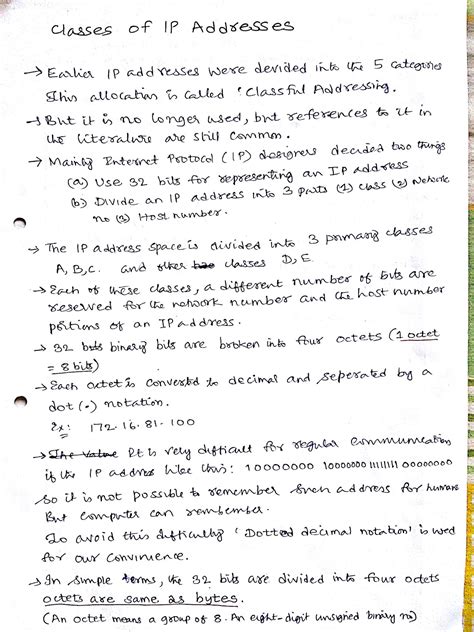 Classes of IP Addresses
→ Earlier IP addresses were devided into the 5 categories
This allocation is called 'Classful Addressing.
→ But it is no longer used, but references to it in
the literature are still common.
→ Mainly Internet Protocol (IP) designers decided two things
(a) Use 32 bits for representing an IP address
(b) Divide an IP address into 3 parts (1) class (2) Network
no (3) Host number.
→ The IP address space is divided into 3 primary classes
A, B, C. and other classes D, E
→ Each of these classes, a different number of bits are
reserved for the network number and the host number
portions of an IP address.
→ 32 bits binary bits are broken into four octets (1 octet
= 8 bits)
→ Each octet is converted to decimal and seperated by a
dot (.) notation.
Ex: 172.16.81.100
→ The Value It is very difficult for regular communication
if the IP address like this: 10000000 10000000 11111111 00000000
So it is not possible to remember such address for humans
But computer can remember.
To avoid this difficulty 'Dotted decimal notation' is used
for our convinence.
→ In simple terms, the 32 bits are divided into four octets
octets are same as bytes.
(An octet means a group of 8. An eight-digit unsigned binary no)